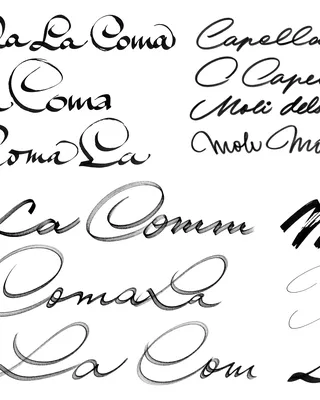 La La Coma
Coma
Coma La
La Comm
Coma La
La Com
Capella
C Cape
Moli dels
Moli M